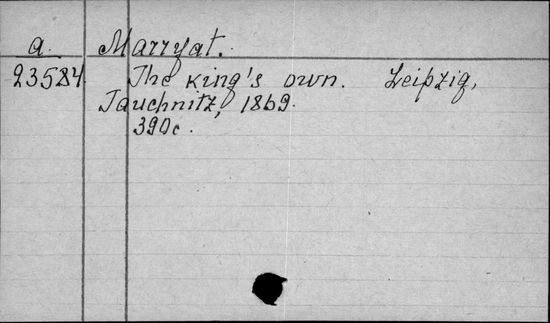 a. Marryat.
23584 The king's own. Leipzig,
Tauchnitz, 1869.
390c.